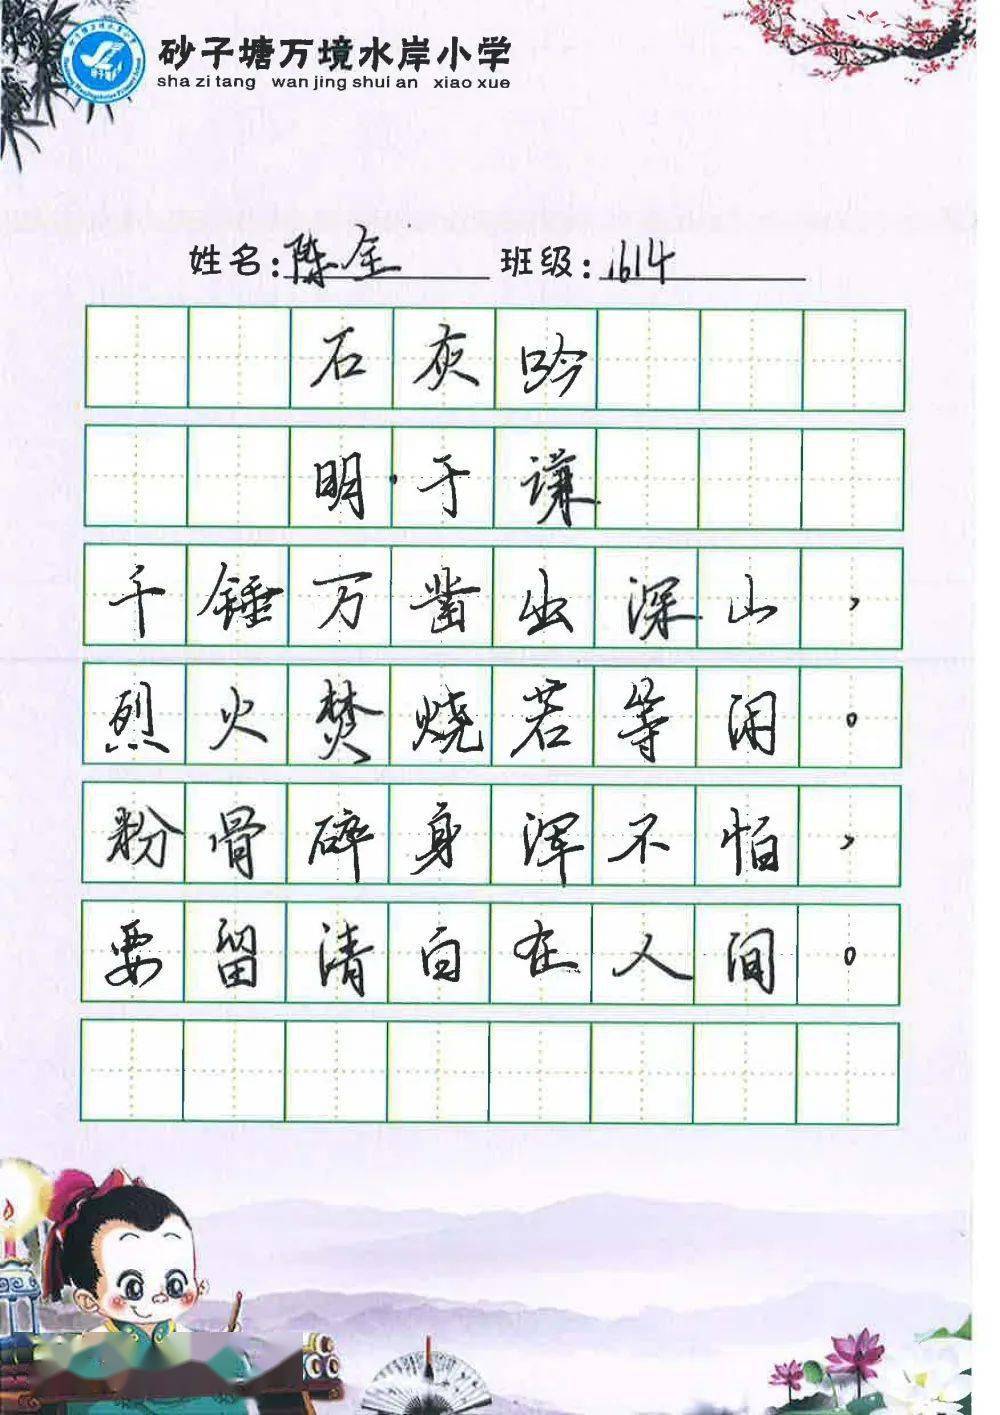 砂子塘万境水岸小学
sha zi tang wan jing shui an xiao xue
姓名:陈全 班级:1614
石灰吟
明·于谦
千锤万凿出深山，
烈火焚烧若等闲。
粉骨碎身浑不怕，
要留清白在人间。